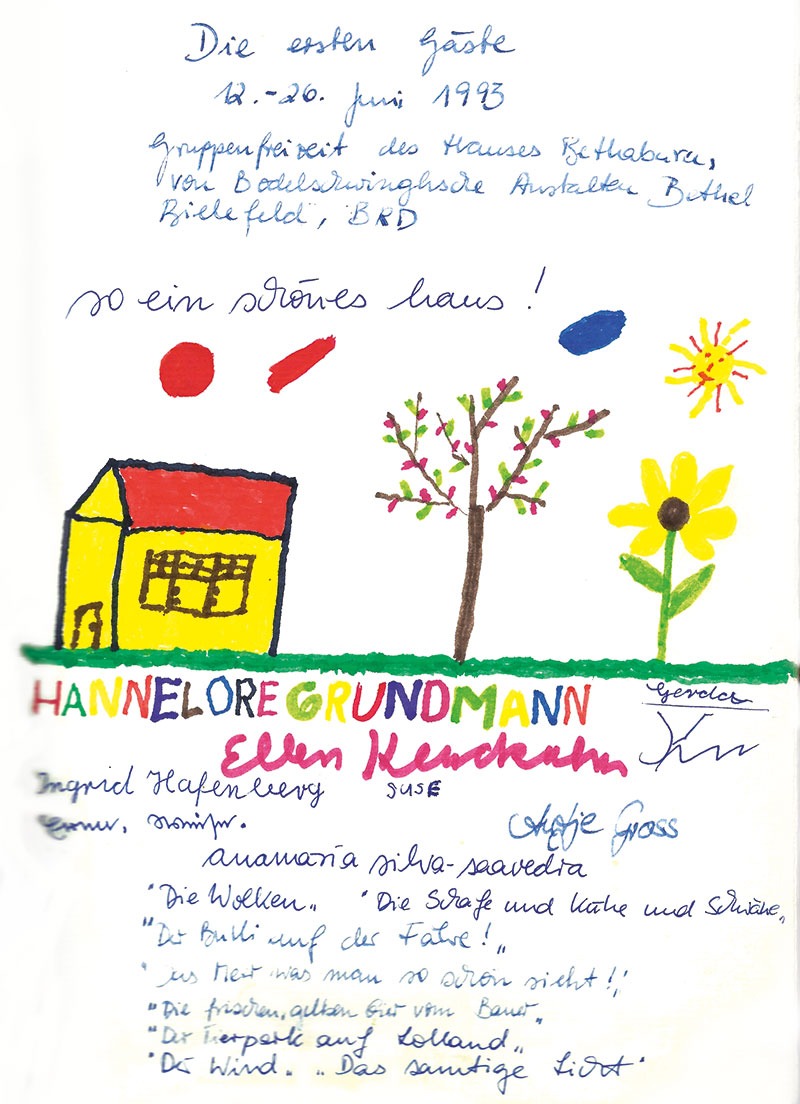 Die ersten Gäste
12.-26. Juni 1993
Gruppenfreizeit des Hauses Bethabara,
von Bodelschwinghsche Anstalten Bethel
Bielefeld, BRD
so ein schönes haus!
HANNELORE GRUNDMANN
Gerda
Ellen
Ingrid Hafenberg SUSE
Antje Gross
anamaría silva-saavedra
"Die Wolken" "Die Schafe und Kühe und Schwäne"
"Der Bulli auf der Fähre!"
"das Meer was man so schön sieht!"
"Die frischen, gelben Eier vom Bauer"
"Der Tierpark auf Lolland"
"Der Wind" "Das samtige Licht"